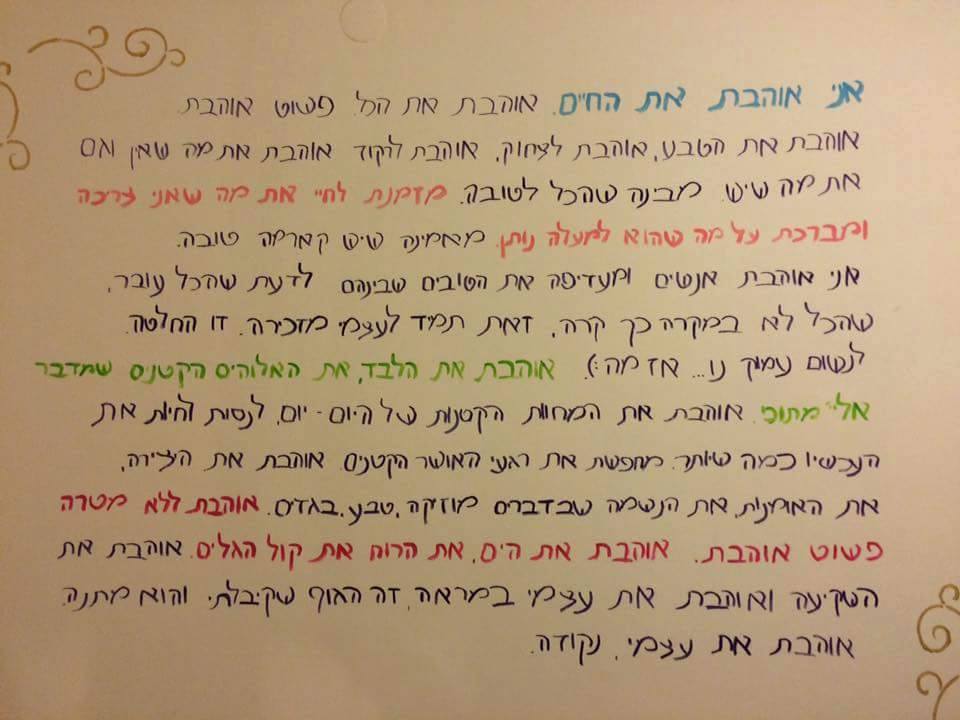 אני אוהבת את החיים. אוהבת את הכל. פשוט אוהבת
אוהבת את הטבע, אוהבת לצחוק, אוהבת לרקוד אוהבת את מה שאין וגם
את מה שיש. מבינה שהכל לטובה. מזמנת לחיי את מה שאני צריכה
ומברכת על מה שהוא למעלה נותן. מאמינה שיש קארמה טובה.
אני אוהבת אנשים ומעדיפה את הטובים שבינהם לדעת שהכל עובר,
שהכל לא במקרה כך קרה, זאת תמיד לעצמי מזכירה. זו החלטה.
לנשום עמוק נו... אז מה :). אוהבת את הלבד, את האלוהים הקטנים שמדבר
אלי מתוכי. אוהבת את המחוות הקטנות של היום - יום, לנסות לחיות את
העכשיו כמה שיותר. מחפשת את רגעי האושר הקטנים. אוהבת את היצירה,
את האומנות, את הנשמה שבדברים מוזיקה, טבע, בגדים. אוהבת ללא מטרה
פשוט אוהבת. אוהבת את הים, את הרוח את קול הגלים. אוהבת את
השקיעה ואוהבת את עצמי במראה, זה הגוף שקיבלתי והוא מתנה.
אוהבת את עצמי. נקודה.